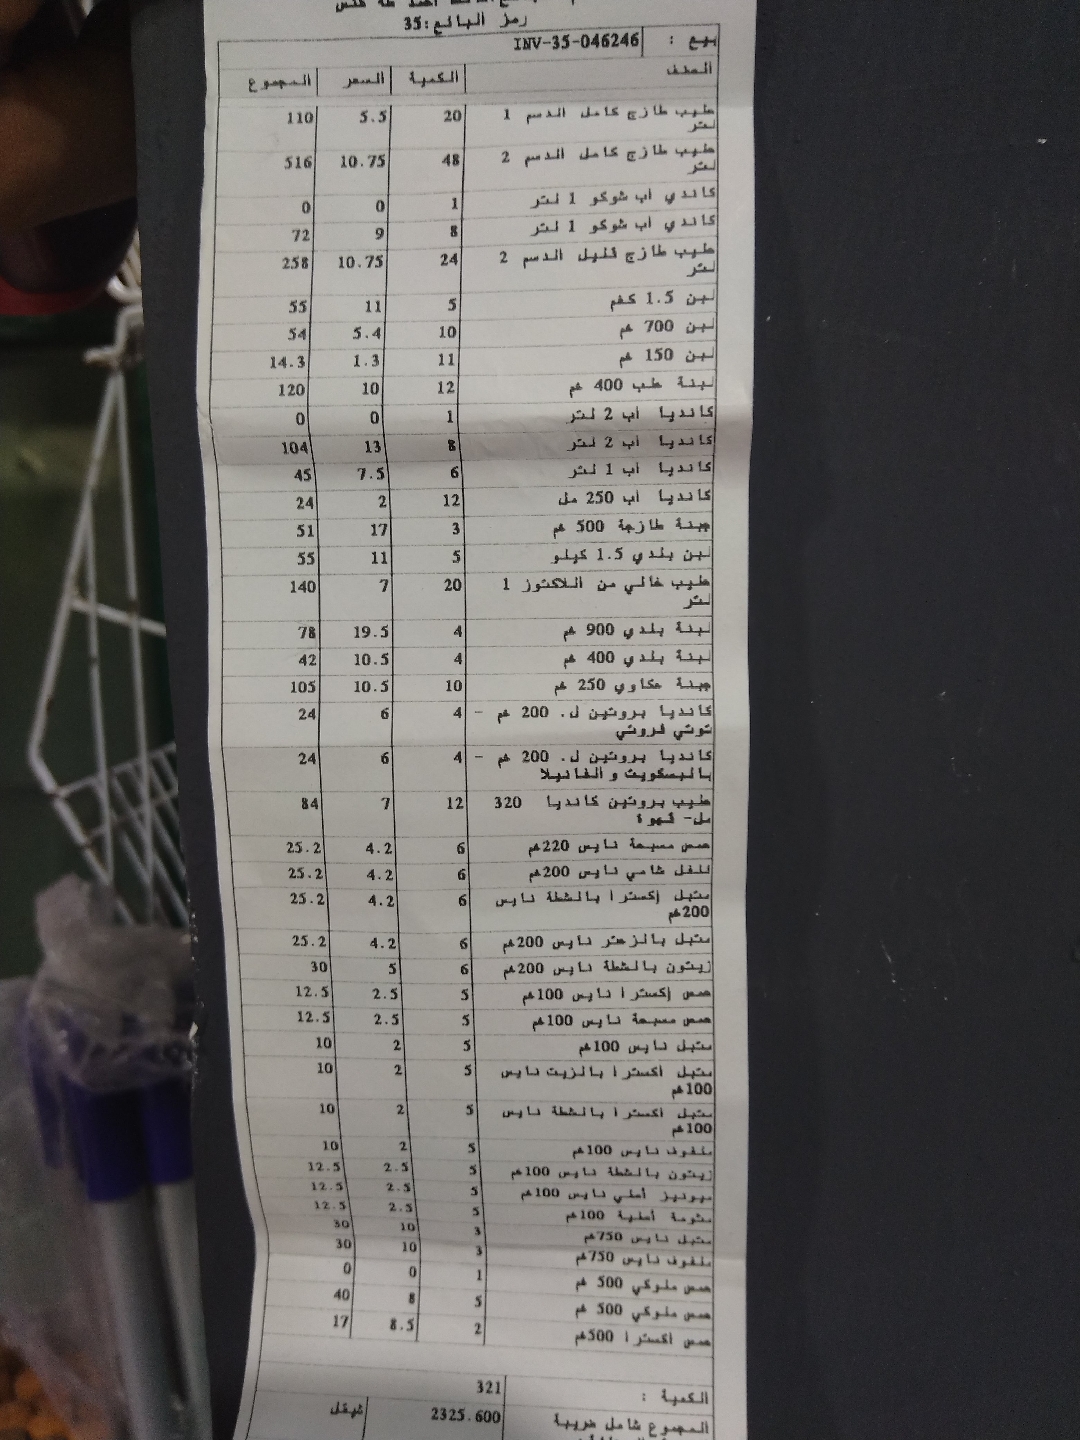 رمز البائع:35
بيع : INV-35-046246
الصنف الكمية السعر المجموع
حليب طازج كامل الدسم 1 20 5.5 110
لتر
حليب طازج كامل الدسم 2 48 10.75 516
لتر
كاندي أب شوكو 1 لتر 1 0 0
كاندي أب شوكو 1 لتر 8 9 72
حليب طازج قليل الدسم 2 24 10.75 258
لتر
لبن 1.5 كغم 5 11 55
لبن 700 غم 10 5.4 54
لبن 150 غم 11 1.3 14.3
لبنة علب 400 غم 12 10 120
كانديا أب 2 لتر 1 0 0
كانديا أب 2 لتر 8 13 104
كانديا أب 1 لتر 6 7.5 45
كانديا أب 250 مل 12 2 24
جبنة طازجة 500 غم 3 17 51
لبن بلدي 1.5 كيلو 5 11 55
حليب خالي من اللاكتوز 1 20 7 140
لتر
لبنة بلدي 900 غم 4 19.5 78
لبنة بلدي 400 غم 4 10.5 42
جبنة عكاوي 250 غم 10 10.5 105
كانديا بروتين ل. 200 غم - 4 6 24
توتي فروتي
كانديا بروتين ل. 200 غم - 4 6 24
بالبسكويت و الفانيلا
حليب بروتين كانديا 320 12 7 84
مل- قهوة
حمص مسبحة نايس 220غم 6 4.2 25.2
فلفل شامي نايس 200غم 6 4.2 25.2
متبل إكسترا بالشطة نايس 6 4.2 25.2
200غم
متبل بالزعتر نايس 200غم 6 4.2 25.2
زيتون بالشطة نايس 200غم 6 5 30
حمص إكسترا نايس 100غم 5 2.5 12.5
حمص مسبحة نايس 100غم 5 2.5 12.5
متبل نايس 100غم 5 2 10
متبل اكسترا بالزيت نايس 5 2 10
100غم
متبل اكسترا بالشطة نايس 5 2 10
100غم
ملفوف نايس 100غم 5 2 10
زيتون بالشطة نايس 100غم 5 2.5 12.5
ميونيز أصلي نايس 100غم 5 2.5 12.5
مثومة أصلية 100غم 5 2.5 12.5
متبل نايس 750غم 3 10 30
ملفوف نايس 750غم 3 10 30
حمص ملوكي 500 غم 1 0 0
حمص ملوكي 500 غم 5 8 40
حمص اكسترا 500غم 2 8.5 17
الكمية : 321
المجموع شامل ضريبة 2325.600 شيقل